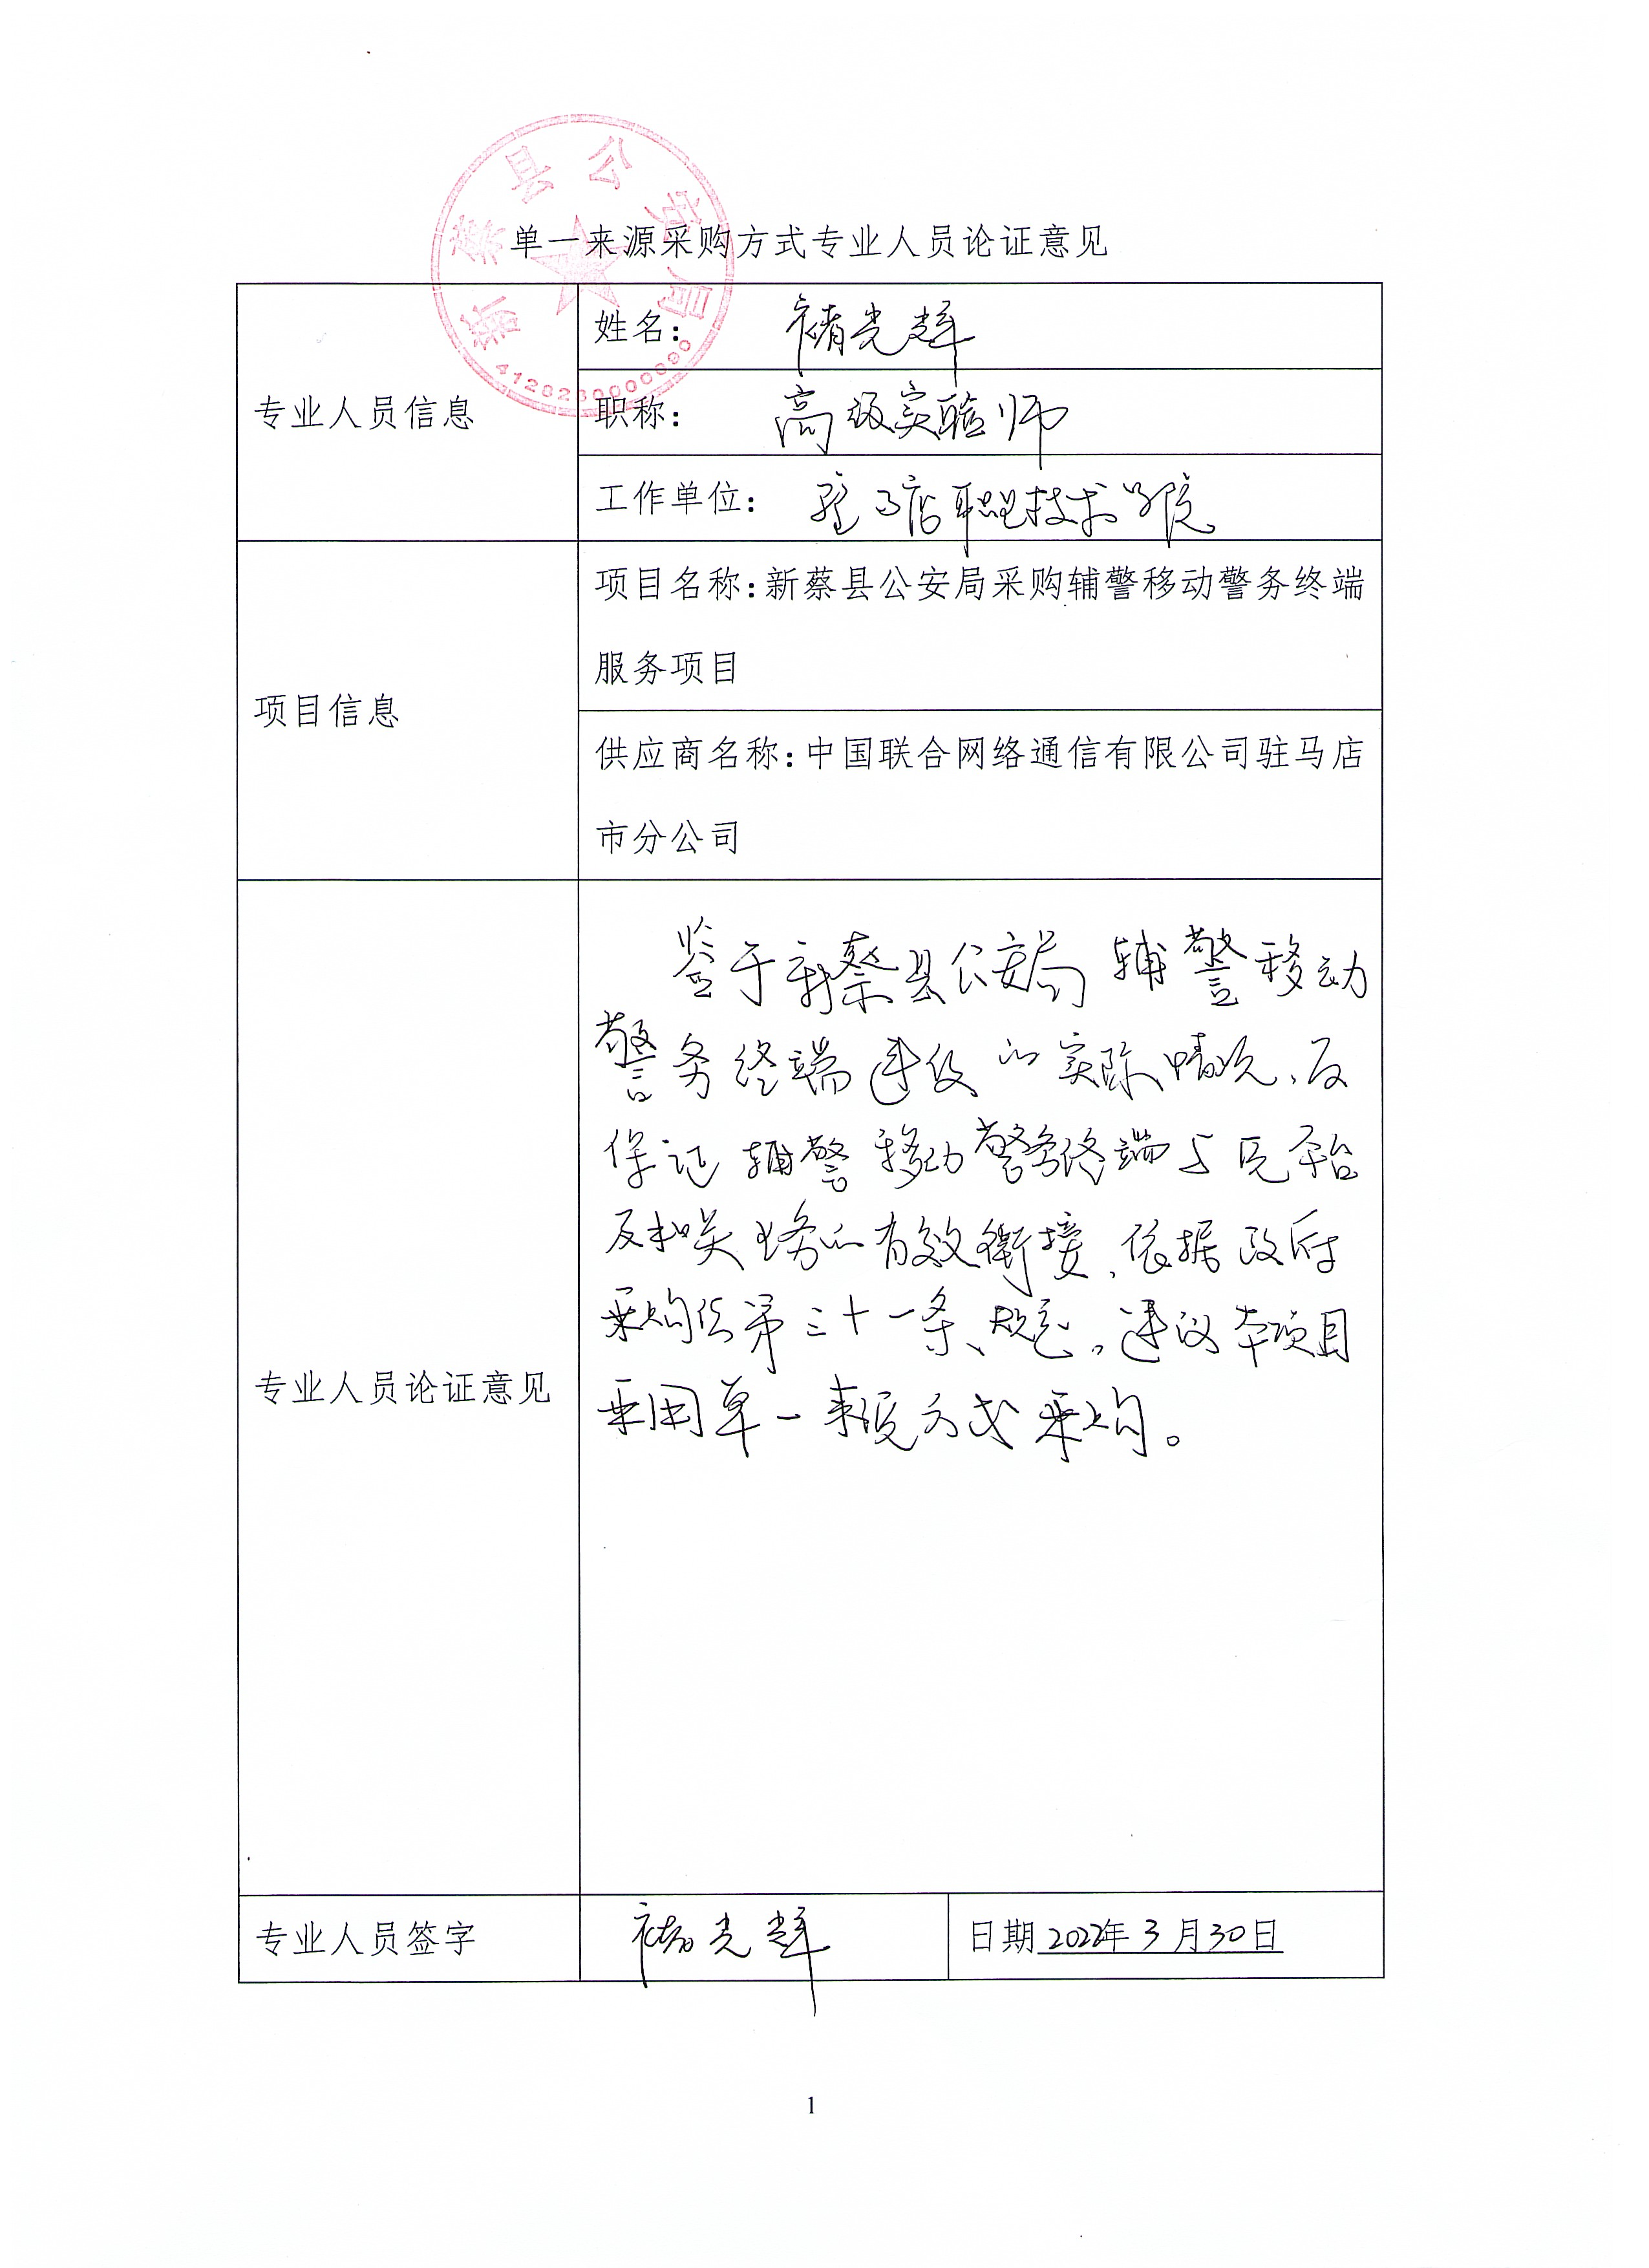 新蔡县公安局
单一来源采购方式专业人员论证意见
专业人员信息
姓名: 褚光辉
职称: 高级实验师
工作单位: 驻马店职业技术学院
项目信息
项目名称:新蔡县公安局采购辅警移动警务终端
服务项目
供应商名称:中国联合网络通信有限公司驻马店
市分公司
专业人员论证意见
鉴于新蔡县公安局辅警移动
警务终端建设的实际情况,及
保证辅警移动警务终端与已平台
及相关业务的有效衔接,依据政府
采购法第三十一条、规定,建议本项目
采用单一来源方式采购。
专业人员签字
褚光辉
日期 2022年3月30日
1